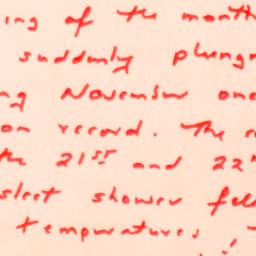 ing of the month
suddenly plung
ng November one
on record. The
the 21st and 22n
sleet shower fell
temperatures